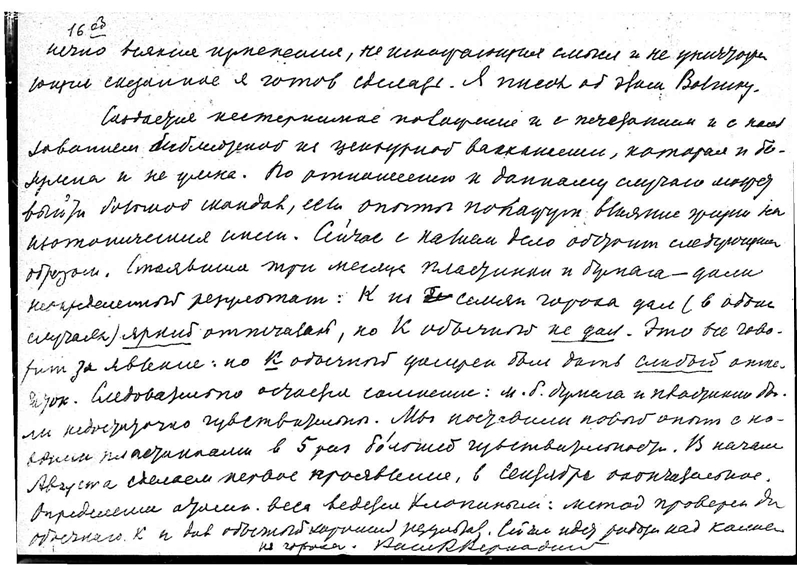 16 об
нечно всякие изменения, не искажающие смысл и не уничтожа
ющие сказанное я готов сделать. Я писал об этом Вольпину.
Создается нестерпимое положение и с печатанием и с поль
зованием библиотекой из цензурной вакханалии, которая и бе-
зумна и не умна. По отношению к данному случаю может
выйти большой скандал, если опыты покажут влияние жизни на
изотопические смеси. Сейчас с калием дело обстоит следующим
образом. Стоявшие три месяца пластинки и бумага — дали
неопределенный результат: К из семян гороха дал (в обоих
случаях) яркий отпечаток, но К обычный не дал. Это все гово-
рит за явление: но К обычный должен был дать слабый отпе-
чаток. Следовательно остается сомнение: м. б. бумага и пластинки бы-
ли недостаточно чувствительны. Мы поставили новый опыт с но-
выми пластинками в 5 раз большей чувствительности. В начале
Августа сделаем первое проявление, в Сентябре окончательное.
Определение атомн. веса ведется Хлопиным: метод проверен для
обычного К и дал обычный хороший результат. Сейчас идет работа над калием
из гороха. Ваш В. Вернадский